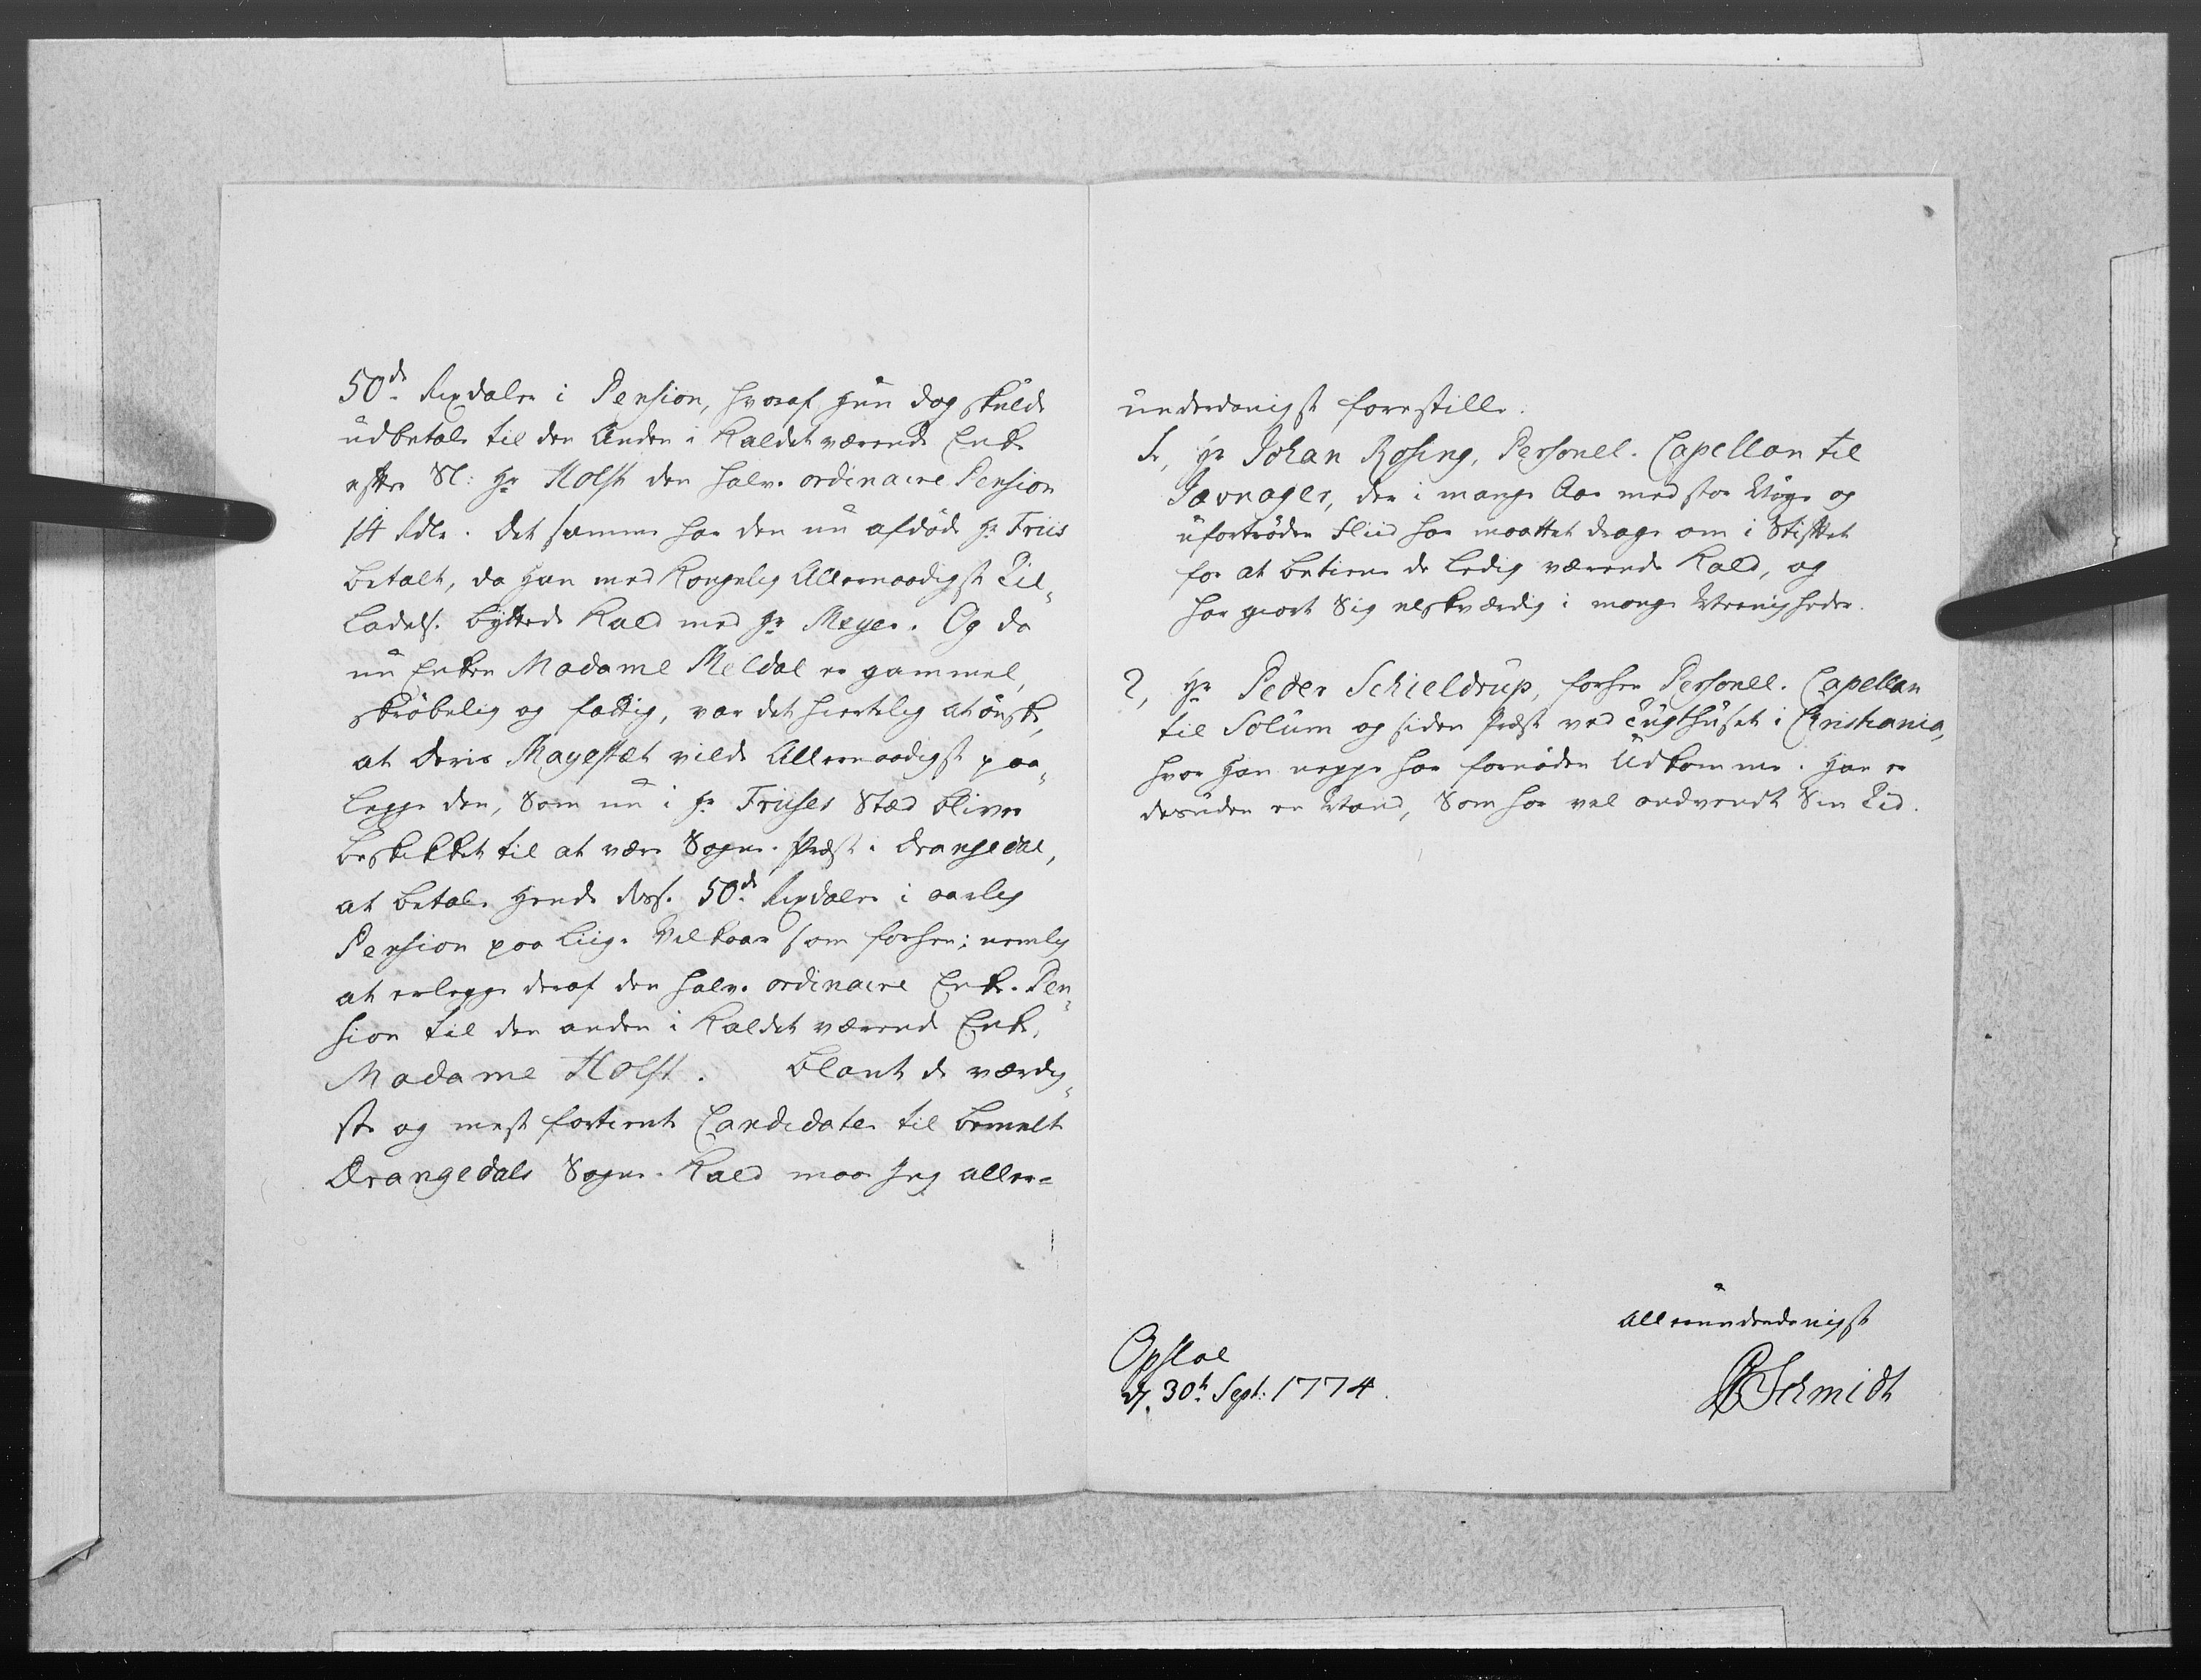 50de Rixdaler i Pension, hvoraf Hun dog skulde
udbetale til den Anden i Kaldet værende Enke
efter Sl: Hr Holst den halve ordinaire Pension
14 Rdlr. Det samme har den nu afdøde Hr Friis
betalt, da Han med Kongelig Allernaadigst Til„
ladelse byttede Kald med Hr Meyer. Og da
nu Enken Madame Meldal er gammel,
skrøbelig og fattig, var det hiertelig at ønske,
at Deris Mayestæt vilde Allernaadigst paa„
legge den, Som nu i Hr Friises Stæd bliver
beskikket til at være Sogne-Præst i Drangedal,
at betale Hende disse 50de Rixdaler i aarlig
Pension paa liige Vilkaar som forhen; nemlig
at erlegge deraf den halve ordinaire Enke-Pen„
sion til den anden i Kaldet værende Enke,
Madame Holst. Blant de værdig„
ste og mest fortiente Candidater til bemelte
Drangedals Sogne-Kald maa Jeg aller-
underdanigst forestille.
1, Hr Johan Rosing, Personel-Capellan til
Jævnager, der i mange Aar med stor Møye og
ufortrøden Fliid har maattet drage om i Stiftet
for at betiene de ledig værende Kald, og
har giort Sig elskværdig i mange Meenigheder.
2, Hr Peder Schieldrup, forhen Personel-Capellan
til Solum og siden Præst ved Tugthuset i Christiania,
hvor Han neppe har fornøden Udkomme. Han er
desuden en Mand, Som har vel andvendt Sin Tid.
Allerunderdanigst
Opsloe
d. 30te Sept: 1774.
Schmidt